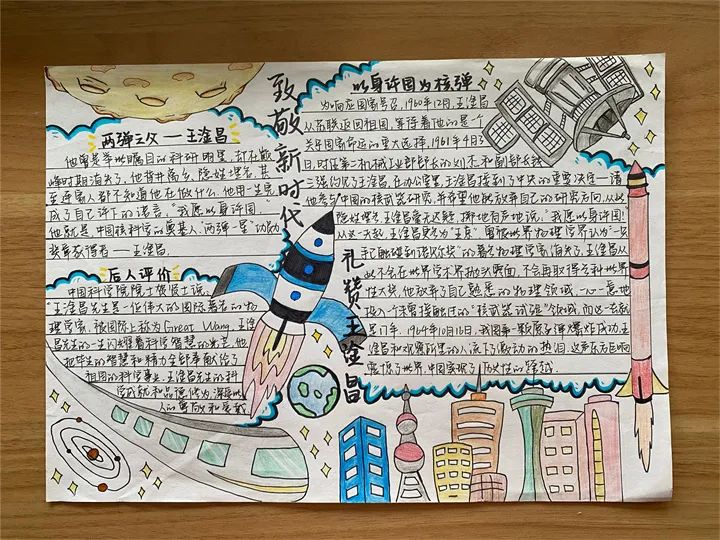 致敬新时代
礼赞王淦昌
两弹之父——王淦昌
他曾是举世瞩目的科研明星,却在巅
峰时期消失了,他背井离乡,隐姓埋名,甚
至连家人都不知道他在做什么,他用一生完
成了自己许下的诺言,"我愿以身许国,"
他就是中国核科学的奠基人、两弹一星"功勋
奖章获得者——王淦昌.
后人评价
中国科学院院士 说,
"王淦昌先生是一位伟大的国际著名的物
理学家,被国际上称为Great Wang.王淦
昌先生的一生闪耀着科学智慧的光芒,他
把毕生的智慧和精力全部奉献给了
祖国的科学事业.王淦昌先生的科
学成就和品德 为 以
人的 和
以身许国为核弹
为响应国家号召,1960年12月,王淦昌
从苏联返回祖国,等待着他的是一个
关乎国家命运的重大选择,1961年4月3
日,时任第二机械工业部部长的刘杰和副部长钱
三强约见了王淦昌,在办公室里,王淦昌接到了中央的重要决定—请
他参与中国的核武器研究,并希望他能放弃自己的研究方向,从此
隐姓埋名,王淦昌毫无迟疑,掷地有声地说,"我愿以身许国!
从这一天起,王淦昌更名为"王京",曾被世界物理学界认为"一只
手已触碰到诺贝尔奖"的著名物理学家消失了,王淦昌从
此不会在世界学术界抛头露面,不会再取得Sci世界
性大奖,他放弃了自己熟悉的物理领域,一心一意地
投入一个未曾接触过的"核武器试验"领域,而这一去就
是17年,1964年10月16日,我国第一颗原子弹爆炸成功,王
淦昌和观察所里的人流下了激动的热泪,这声东方巨响
震惊了世界,中国实现了历史性的跨越.